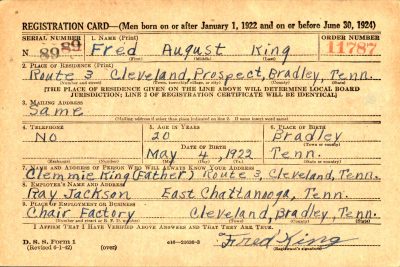 REGISTRATION CARD—(Men born on or after January 1, 1922 and on or before June 30, 1924)
SERIAL NUMBER 1. NAME (Print) ORDER NUMBER
N 89 89 Fred August King 11787
(First) (Middle) (Last)
2. PLACE OF RESIDENCE (Print)
Route 3 Cleveland, Prospect, Bradley, Tenn.
(Number and street) (Town, township, village, or city) (County) (State)
[THE PLACE OF RESIDENCE GIVEN ON THE LINE ABOVE WILL DETERMINE LOCAL BOARD
JURISDICTION; LINE 2 OF REGISTRATION CERTIFICATE WILL BE IDENTICAL]
3. MAILING ADDRESS
Same
[Mailing address if other than place indicated on line 2. If same insert word same]
4. TELEPHONE 5. AGE IN YEARS 6. PLACE OF BIRTH
No 20 Bradley
DATE OF BIRTH (Town or county)
May 4, 1922 Tenn.
(Exchange) (Number) (Mo.) (Day) (Yr.) (State or country)
7. NAME AND ADDRESS OF PERSON WHO WILL ALWAYS KNOW YOUR ADDRESS
Clemmie King (Father) Route 3, Cleveland, Tenn.
8. EMPLOYER'S NAME AND ADDRESS
Ray Jackson East Chattanooga, Tenn.
9. PLACE OF EMPLOYMENT OR BUSINESS
Chair Factory Cleveland, Bradley, Tenn.
(Number and street or R. F. D. number) (Town) (County) (State)
I AFFIRM THAT I HAVE VERIFIED ABOVE ANSWERS AND THAT THEY ARE TRUE.
D. S. S. Form 1
(Revised 6-1-42) (over) Fred King
(Registrant's signature)